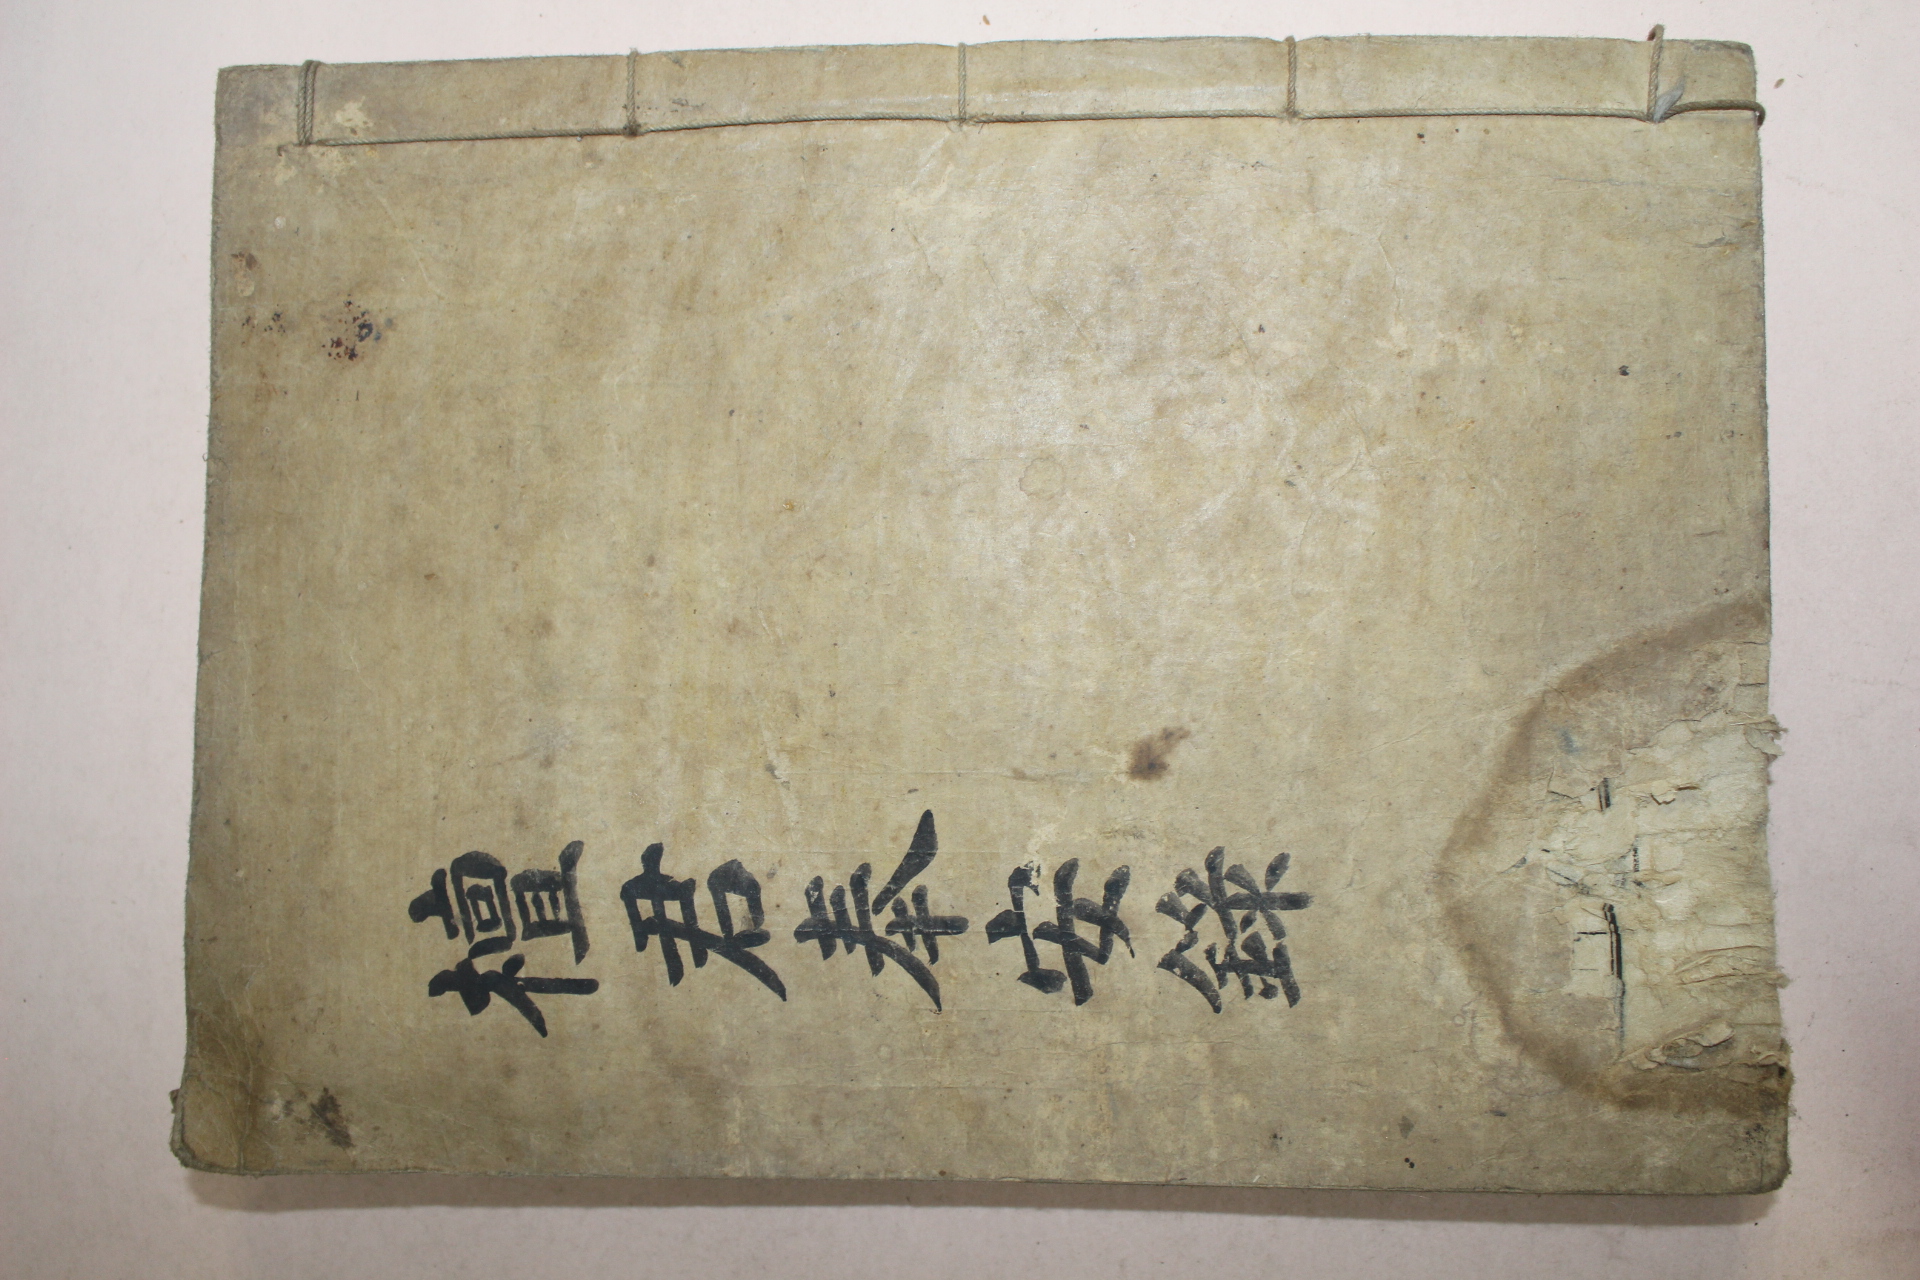 檀君奉安錄